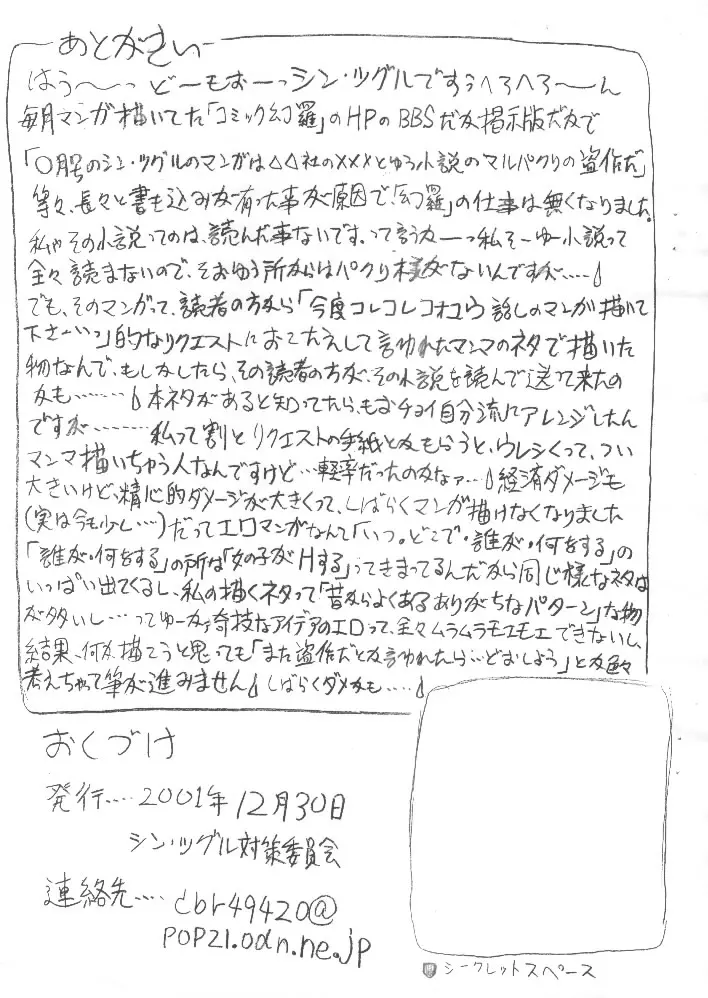 あとがきい
はう〜っ どーもおーっシン・ツグルですぅへろへろ〜ん
毎月マンガ描いてた「コミック幻羅」のHPのBBSだか掲示版だかで
「○月号のシン・ツグルのマンガは△△社の×××とゆう小説のマルパクリの盗作だ」
等々、長々と書き込みが有った事が原因で「幻羅」の仕事は無くなりました。
私ゃその小説ってのは、読んだ事ないです、って言うかーっ私そーゆー小説って
全々読まないので、そおゆう所からはパクり様がないんですが……
でも、そのマンガって、読者の方から「今度コレコレコオユウ話しのマンガ描いて
下さーいっ」的なリクエストにおこたえして言われたマンマのネタで描いた
物なんで、もしかしたら、その読者の方が、その小説を読んで送って来たの
かも……… 本ネタがあると知ってたら、もおチョイ自分流にアレンジしたん
ですが……… 私って割とリクエストの手紙とかもらうと、ウレシくって、つい
マンマ描いちゃう人なんですけど…軽率だったのかなァ… 経済ダメージも
大きいけど、精心的ダメージが大きくって、しばらくマンガ描けなくなりました
(実は今も少し…)だってエロマンガなんて「いつ。どこで・誰が・何をする」の
「誰が・何をする」の所は「女の子がHする」ってきまってるんだから同じ様なネタは
いっぱい出てくるし、私の描くネタって「昔からよくあるありがちなパターン」な物
が多いし…ってゆーか、奇技なアイデアのエロって、全々ムラムラモエモエできないし、
結果、何か描こうと思っても「また盗作だとか言われたら…どおしよう」とか色々
考えちゃって筆が進みません しばらくダメかも……
おくづけ
発行‥‥2001年12月30日
シン・ツグル対策委員会
連絡先‥‥cbr49420@
pop21.odn.ne.jp
シークレットスペース